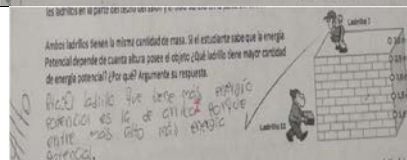 Ladrillo 1
Ambos ladrillos tienen la misma cantidad de masa. Si el estudiante sabe que la energía
Potencial depende de cuanta altura posee el objeto ¿Qué ladrillo tiene mayor cantidad
de energía potencial? ¿Por qué? Argumente su respuesta.
ladrillo que tiene más energía
potencial es la de arriba porque
entre más alto más energía
potencial.
Ladrillo